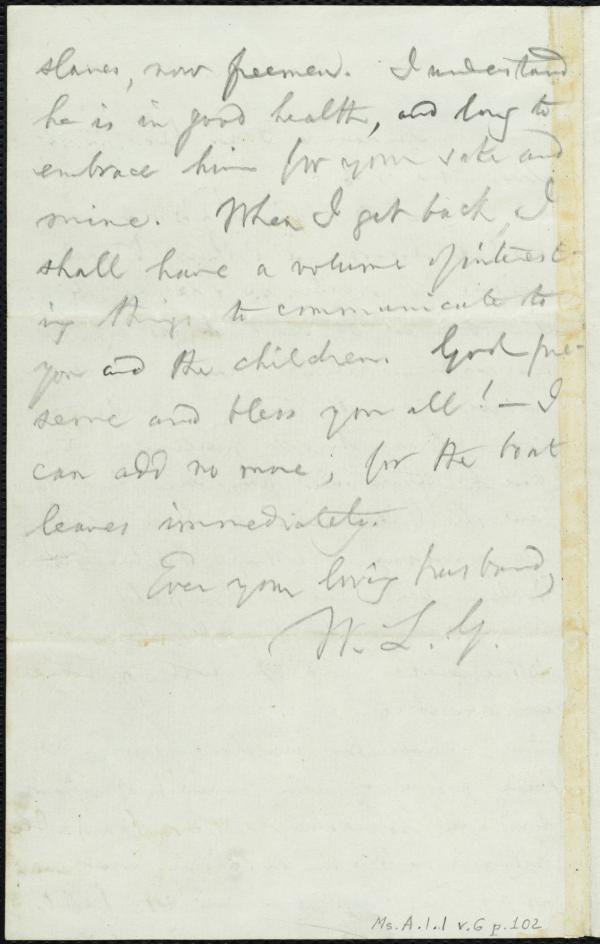 slaves, now freemen. I understand
he is in good health, and long to
embrace him for your sake and
mine. When I get back, I
shall have a volume of interest-
ing things to communicate to
you and the children. God pre-
serve and bless you all! — I
can add no more, for the boat
leaves immediately.
Ever your loving husband,
W. L. G.
Ms.A.1.1 v.6 p.102